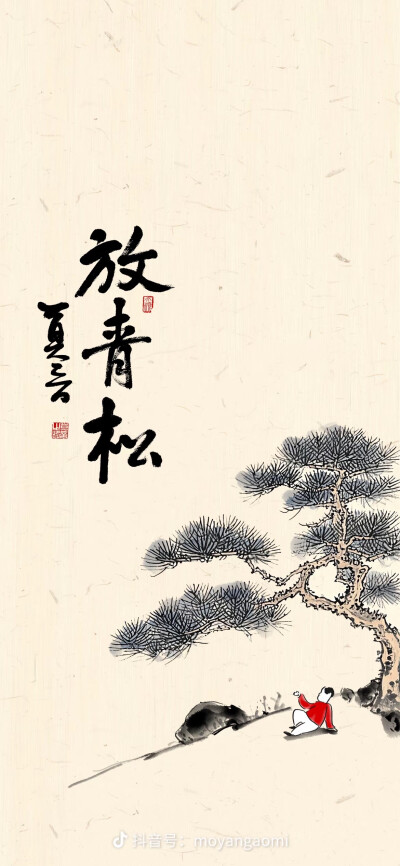 放青松
抖音号：moyangaomi